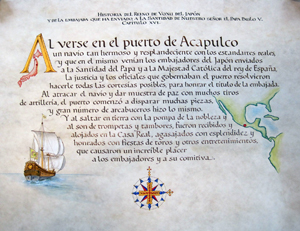 Historia del Reino de Voxu del Japón
y de la embajada que ha enviado a la Santidad de Nuestro Señor el Papa Paulo V.
Capítulo XVI.
Al verse en el puerto de Acapulco
un navío tan hermoso y resplandeciente con los estandartes reales,
y que en el mismo venían los embajadores del Japón enviados
a la Santidad del Papa y a la Majestad Católica del rey de España,
la justicia y los oficiales que gobernaban el puerto resolvieron
hacerle todas las cortesías posibles, para honrar el título de la embajada.
Al atracar el navío y dar muestra de paz con muchos tiros
de artillería, el puerto comenzó a disparar muchas piezas,
y gran número de arcabuceros hizo lo mismo.
Y al saltar en tierra con la pompa de la nobleza y
al son de trompetas y tambores, fueron recibidos y
alojados en la Casa Real, agasajados con esplendidez y
honrados con fiestas de toros y otros entretenimientos,
que causaron un increíble placer
a los embajadores y a su comitiva...